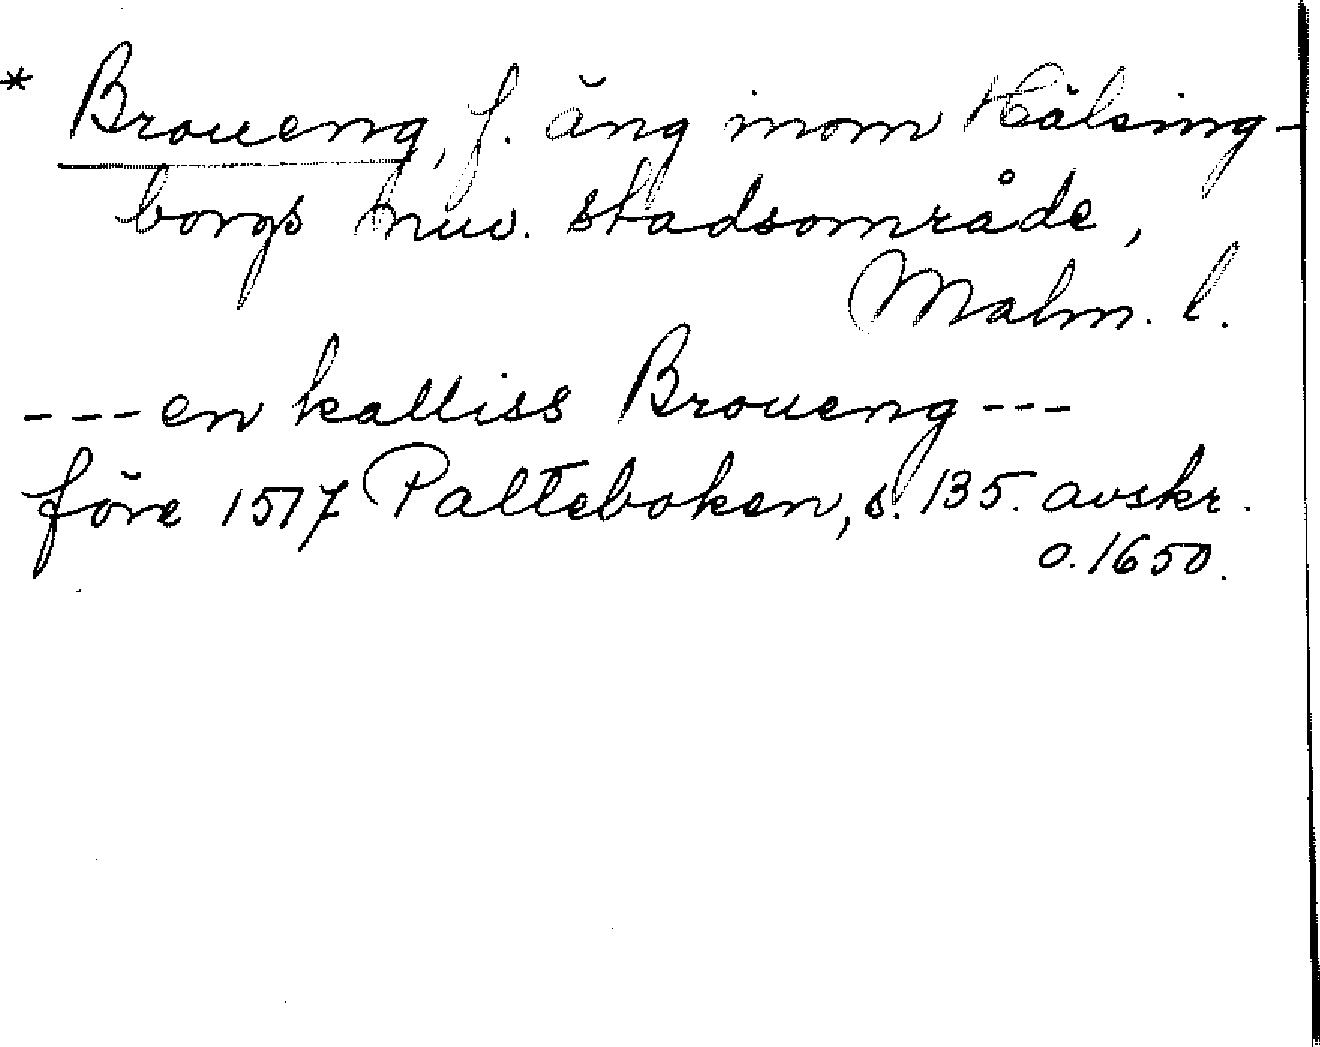 * Broueng, f. äng inom Hälsing-
borgs nuv. stadsområde,
Malm. l.
---en kalliss Broueng---
före 1517 Palteboken, s. 135. avskr.
o. 1650.